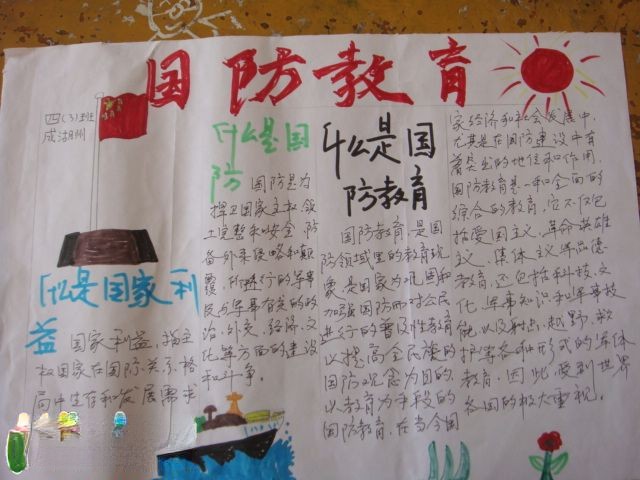 国防教育
四(3)班
成湖州
什么是国家利
益
国家利益,指主
权国家在国际关系格
局中生存和发展需求
什么是国
防
国防是为
捍卫国家主权、领
土完整和安全,防
备外来侵略和颠
覆,所进行的军事
及与军事有关的政
治、外交、经济、文
化等方面的建设
和斗争。
什么是国
防教育
国防教育,是国
防领域里的教育现
象,是国家为巩固和
加强国防而对公民
进行的普及性教育
以提高全民族的
国防观念为目的,
以教育为手段的
国防教育,在当今国
家经济和社会发展中,
尤其是在国防建设中有
着突出的地位和作用,
国防教育是一种全面的
综合的教育,它不仅包
括爱国主义、革命英雄
主义、集体主义军品德
教育,还包括科技、文
化、军事知识和军事技
能,以及射击、越野、救
护等各种形式的军体
教育,因此,受到世界
各国的极大重视。